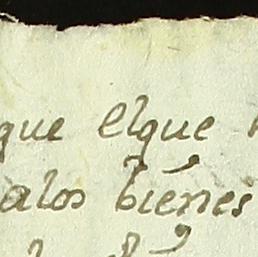 que elque
alos bienes